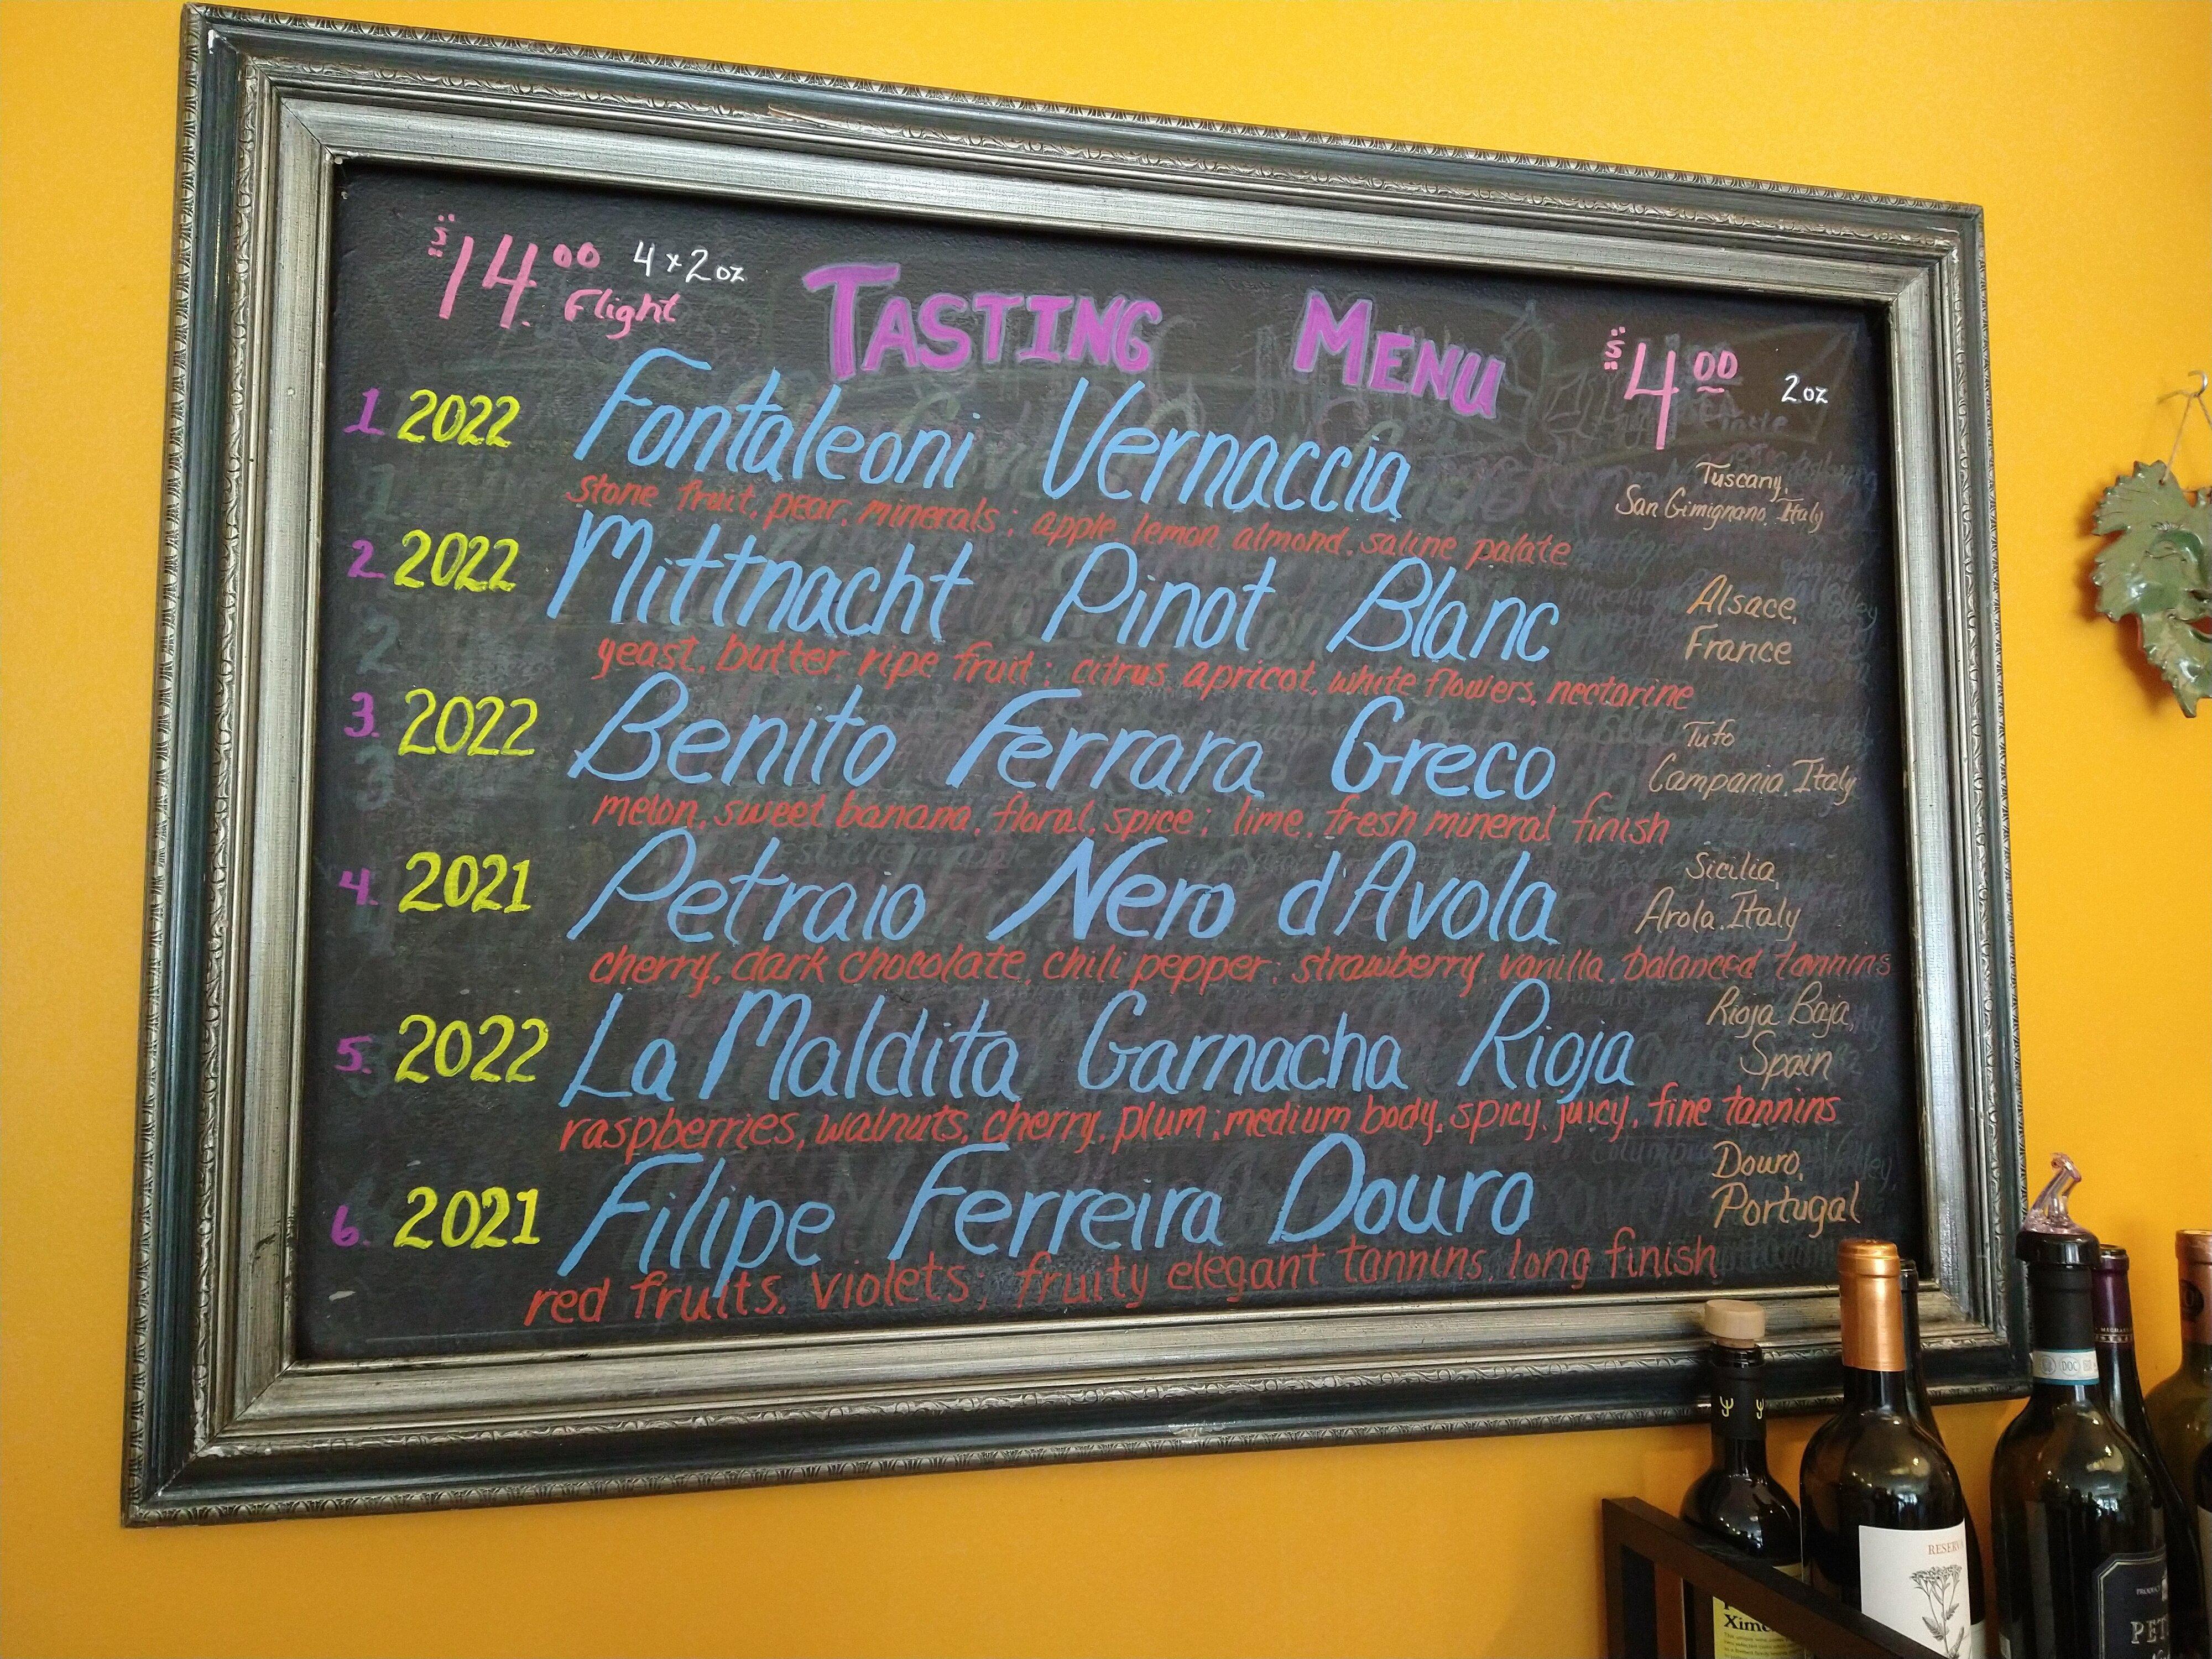 $14.00 4 x 2oz
Flight
TASTING MENU
$4.00 2oz
1. 2022 Fontaleoni Vernaccia
Tuscany,
San Gimignano, Italy
stone fruit, pear, minerals; apple lemon, almond, saline palate
2. 2022 Mittnacht Pinot Blanc
Alsace,
France
yeast, butter, ripe fruit; citrus apricot, white flowers, nectarine
3. 2022 Benito Ferrara Greco
Tufo
Campania, Italy
melon, sweet banana, floral, spice; lime, fresh mineral finish
4. 2021 Petraio Nero d'Avola
Sicilia,
Arola, Italy
cherry, dark chocolate, chili pepper; strawberry, vanilla, balanced tannins
5. 2022 La Maldita Garnacha Rioja
Rioja Baja,
Spain
raspberries, walnuts, cherry, plum; medium body, spicy, juicy, fine tannins
6. 2021 Filipe Ferreira Douro
Douro,
Portugal
red fruits, violets; fruity elegant tannins, long finish
DOC